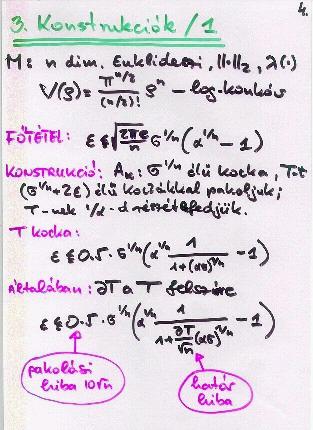 4.
3. Konstrukciók / 1
M: n dim. Euklideszi, ||·||₂, λ(·)
V(ρ) = π^{n/2} / (n/2)! ρⁿ – log-konkáv
FŐTÉTEL: ε ≤ √(2πe/n) σ^{1/n} (α^{1/n} – 1)
KONSTRUKCIÓ: Aₖ: σ^{1/n} élű kocka, T-t
(σ^{1/n} + 2ε) élű kockákkal pakoljuk;
T-nek 1/α-d részét lefedjük.
T kocka:
ε ≤ 0.5 · σ^{1/n} (α^{1/n} 1 / (1 + (ασ)^{1/n}) – 1)
Általában: ∂T a T felszíne
ε ≤ 0.5 · σ^{1/n} (α^{1/n} 1 / (1 + ∂T/√n (ασ)^{1/n}) – 1)
pakolási
hiba 10√n
határ
hiba